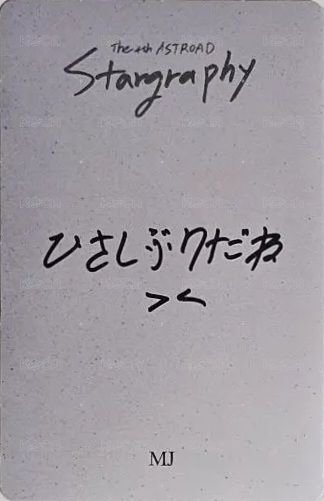 The 4th ASTROAD
Stargraphy
ひさしぶりだね
><
MJ